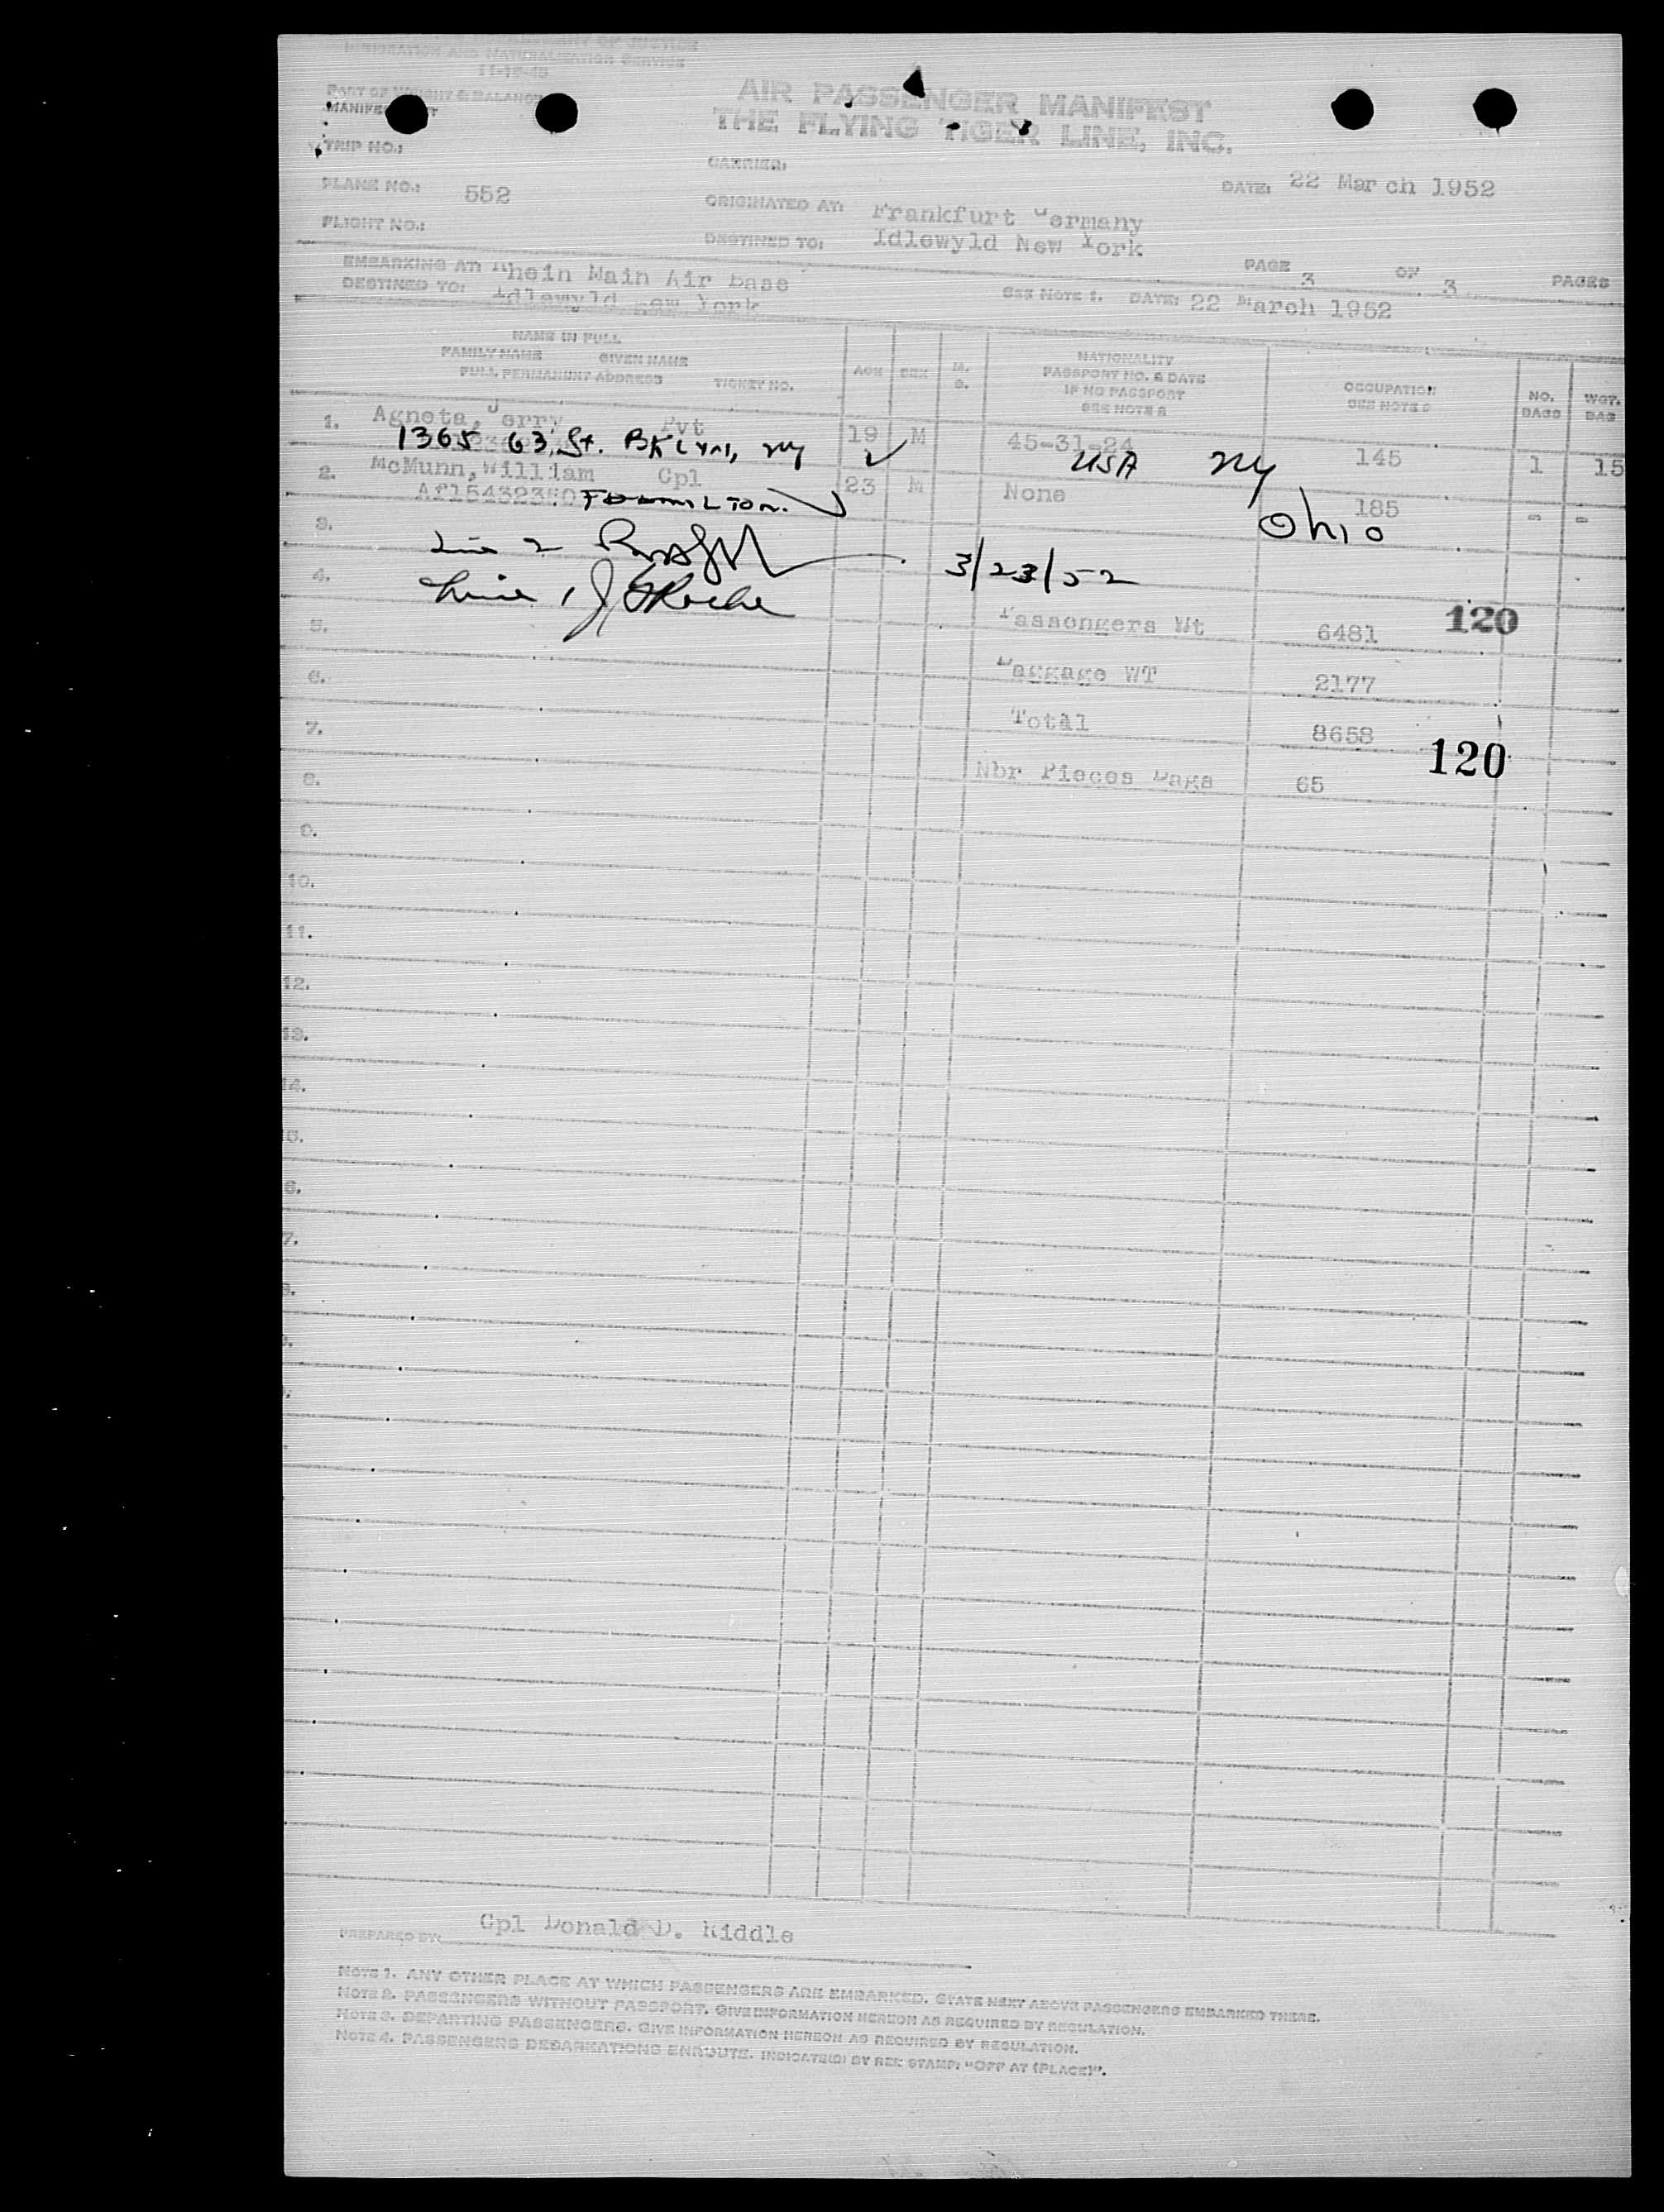 DEPARTMENT OF JUSTICE
IMMIGRATION AND NATURALIZATION SERVICE
11-18-49
PART OF WEIGHT & BALANCE
MANIFEST
AIR PASSENGER MANIFEST
THE FLYING TIGER LINE, INC.
TRIP NO.:
CARRIER:
PLANE NO.: 552
DATE: 22 March 1952
ORIGINATED AT: Frankfurt Germany
FLIGHT NO.:
DESTINED TO: Idlewyld New York
EMBARKING AT: Rhein Main Air Base
PAGE 3 OF 3 PAGES
DESTINED TO: Idlewyld New York
SEE NOTE 1. DATE: 22 March 1952
NAME IN FULL
FAMILY NAME GIVEN NAME
FULL PERMANENT ADDRESS TICKET NO.
AGE SEX M. S.
NATIONALITY
PASSPORT NO. & DATE
IF NO PASSPORT
SEE NOTE 2
OCCUPATION
SEE NOTE 3
NO. BAGS
WGT. BAG
1. Agneta, Jerry Pvt 19 M 45-31-24 145 1 15
1365 63 St. BKLYN, NY USA NY
2. McMunn, William Cpl 23 M None 185 - -
Af15432350 Ohio
3.
Line 2 3/23/52
4.
Line 1
5. Passengers Wt 6481 120
6. Baggage WT 2177
7. Total 8658 120
8. Nbr Pieces Bags 65
9.
10.
11.
12.
13.
14.
5.
6.
7.
PREPARED BY: Cpl Donald D. Riddle
NOTE 1. ANY OTHER PLACE AT WHICH PASSENGERS ARE EMBARKED. STATE NEXT ABOVE PASSENGERS EMBARKED THERE.
NOTE 2. PASSENGERS WITHOUT PASSPORT. GIVE INFORMATION HEREON AS REQUIRED BY REGULATION.
NOTE 3. DEPARTING PASSENGERS. GIVE INFORMATION HEREON AS REQUIRED BY REGULATION.
NOTE 4. PASSENGERS DEBARKATIONS ENROUTE. INDICATE(D) BY REE STAMP: "OFF AT (PLACE)".